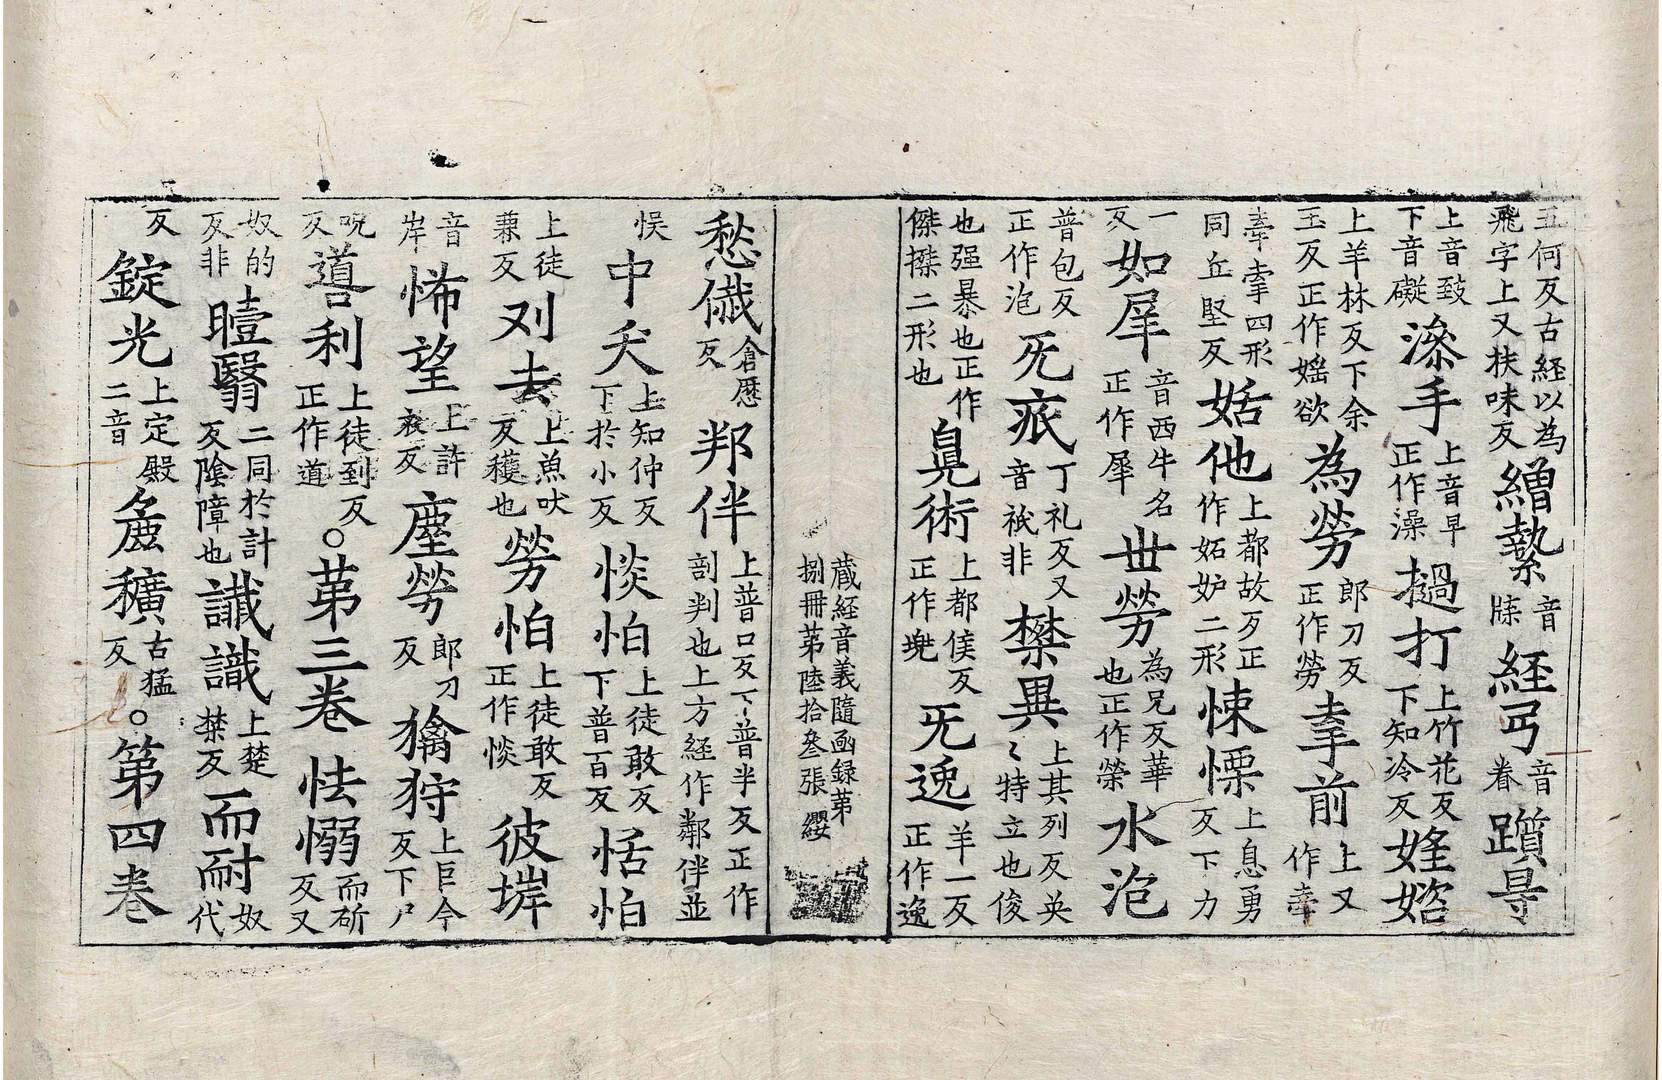 五何反古経以為飛字上又扶味反繒褺音牒経弓音眷躓㝵
上音致下音礙㴃手上音早正作澡撾打上竹花反下知冷反婬婬
上羊林反下余玉反正作婬欲為劳郎刀反正作勞牽前上又作牽
牽牽四形同丘堅反姤他上都故反正作妬妒二形悚慄上息勇反下力
一反如犀音西牛名正作犀丗劳為兄反華也正作榮水泡
普包反正作泡旡疷丁礼反又音祇非㰏異上其列反英〻特立也俊
也強暴也正作傑搩二形也㒵術上都侯反正作兠旡逸羊一反正作逸
蔵経音義隨函録苐捌冊苐陸拾叄張 纓
愁慽倉歷反判伴上普口反下普半反正作剖判也上方経作鄰伴並
悮中夭上知仲反下於小反惔怕上徒敢反下普百反恬怕
上徒兼反刈去上魚吠反穫也劳怕上徒敢反正作惔彼垾
音岸悕望上許衣反塵劳郎刀反擒狩上巨今反下尸
呪反噵利上徒到反正作道。苐三卷 怯愵而斫反又
奴的反非曀翳二同於計反陰障也讖識上楚禁反而耐奴代
反錠光上定殿二音麁穬古猛反。苐四卷